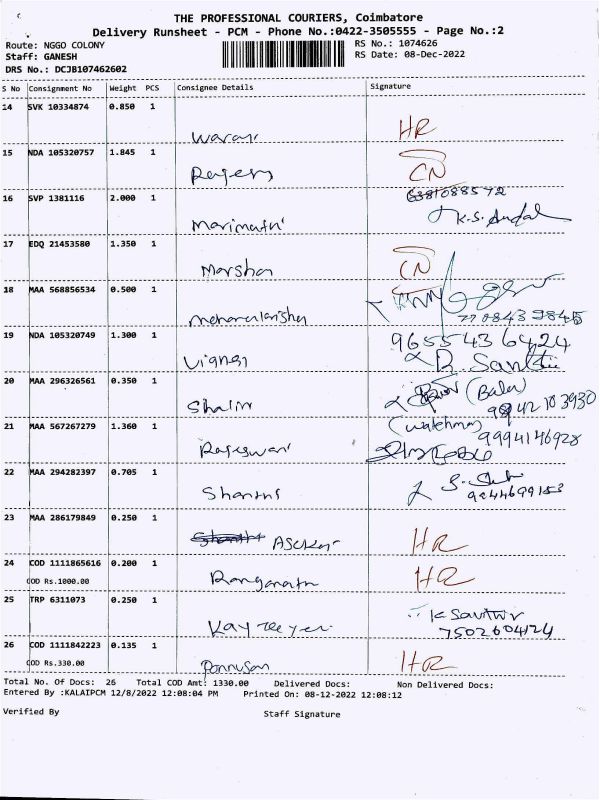 THE PROFESSIONAL COURIERS, Coimbatore
Delivery Runsheet - PCM - Phone No.:0422-3505555 - Page No.:2
Route: NGGO COLONY
RS No.: 1074626
Staff: GANESH
RS Date: 08-Dec-2022
DRS No.: DCJB107462602
S No Consignment No Weight PCS Consignee Details Signature
14 SVK 10334874 0.850 1
HR
15 NDA 105320757 1.845 1
Rajesh CN
16 SVP 1381116 2.000 1 6381088572
Marimuthu K.S. Andal
17 EDQ 21453580 1.350 1
CN
18 MAA 568856534 0.500 1
19 NDA 105320749 1.300 1 9655436424
Vignesh
20 MAA 296326561 0.350 1
Shalini (Bala)
21 MAA 567267279 1.360 1 (watchman) 9994146928
Rajeswari
22 MAA 294282397 0.705 1
Shanthi
23 MAA 286179849 0.250 1
Asokan HR
24 COD 1111865616 0.200 1
COD Rs.1000.00 Ranganath HR
25 TRP 6311073 0.250 1
7502604124
26 COD 1111842223 0.135 1
COD Rs.330.00 Ponnusan HR
Total No. Of Docs: 26 Total COD Amt: 1330.00 Delivered Docs: Non Delivered Docs:
Entered By :KALAIPCM 12/8/2022 12:08:04 PM Printed On: 08-12-2022 12:08:12
Verified By Staff Signature